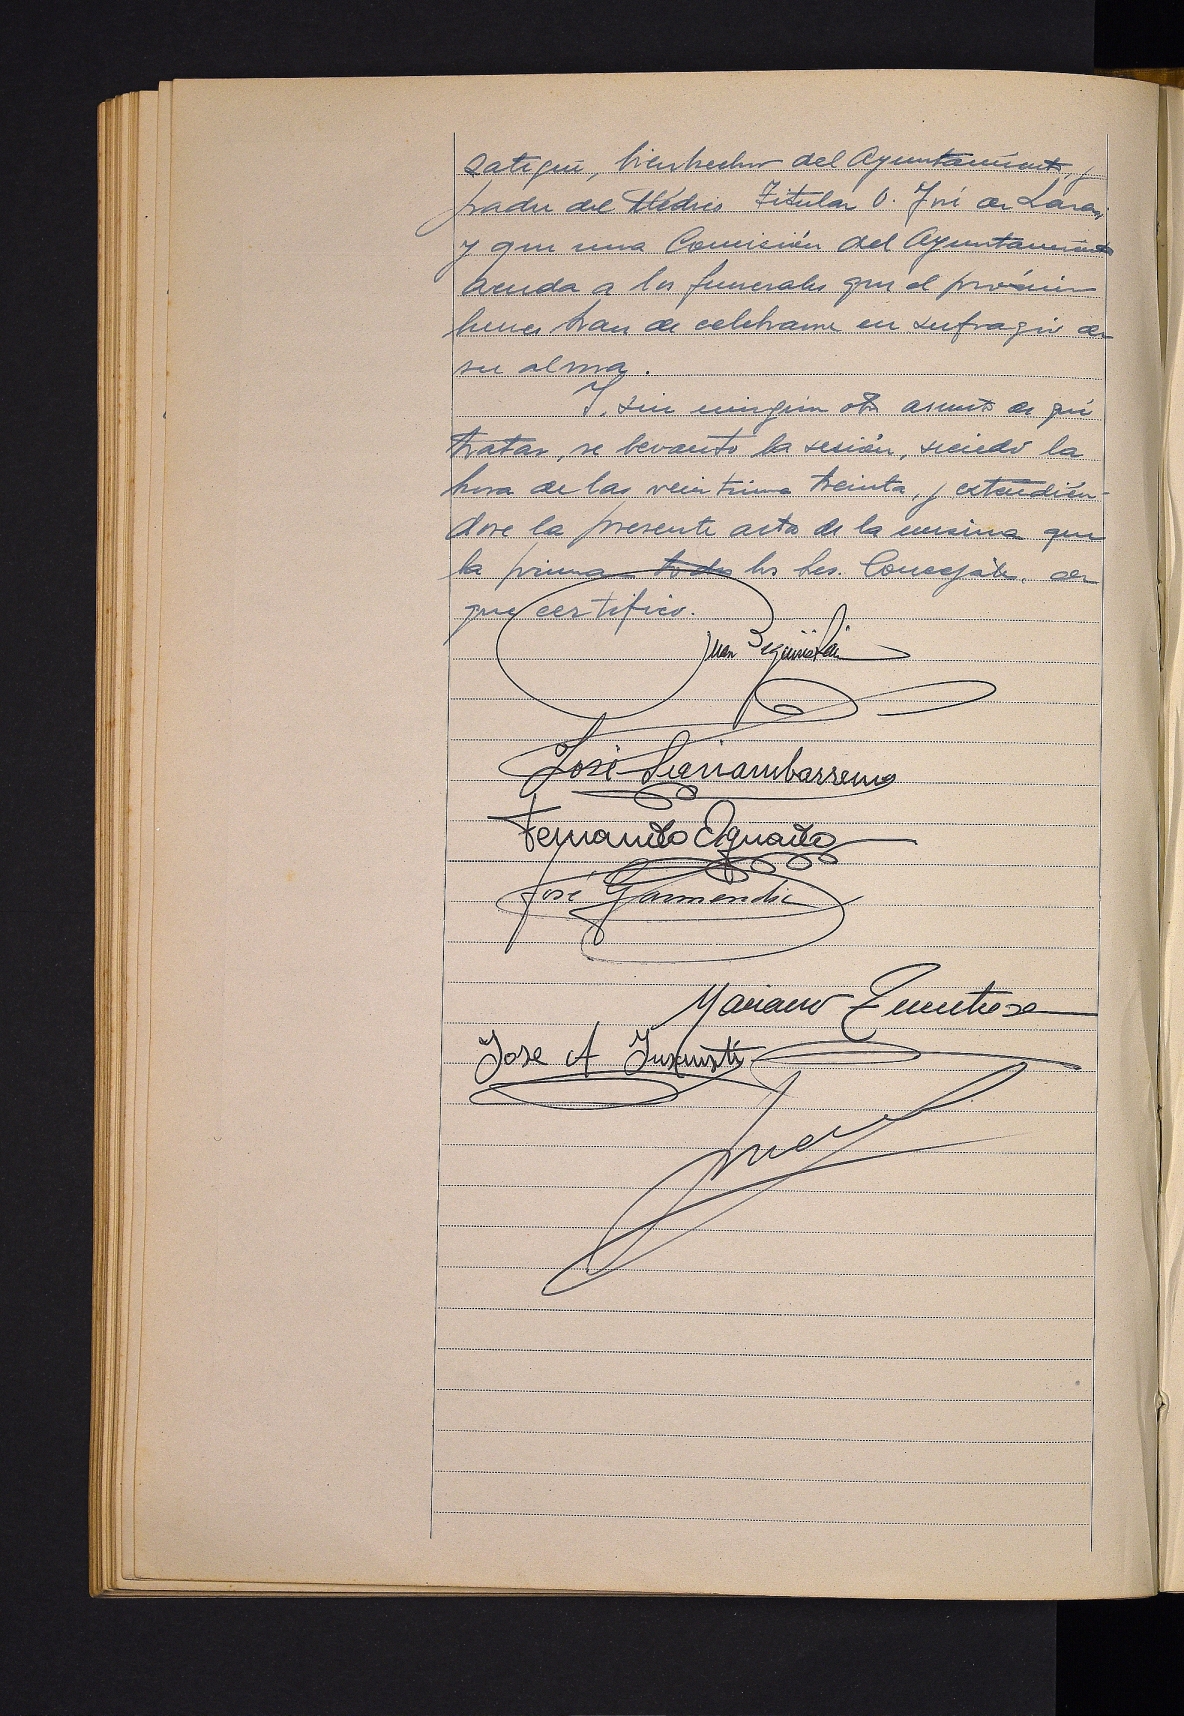 zategui, bienhechor del Ayuntamiento, y
padre del Médico Titular D. José de
y que una Comisión del Ayuntamiento
acuda a los funerales que el próximo
lunes han de celebrarse en sufragio de
su alma.
Y, sin ningún otro asunto de qué
tratar, se levantó la sesión, siendo la
hora de las veintiuna treinta, y extendién-
dose la presente acta de la misma que
la firman todos los Sres. Concejales, de
que certifico.
Juan
José
Fernando
José Garmendia
Mariano
Jose A